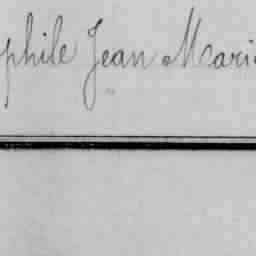 phile Jean Mari